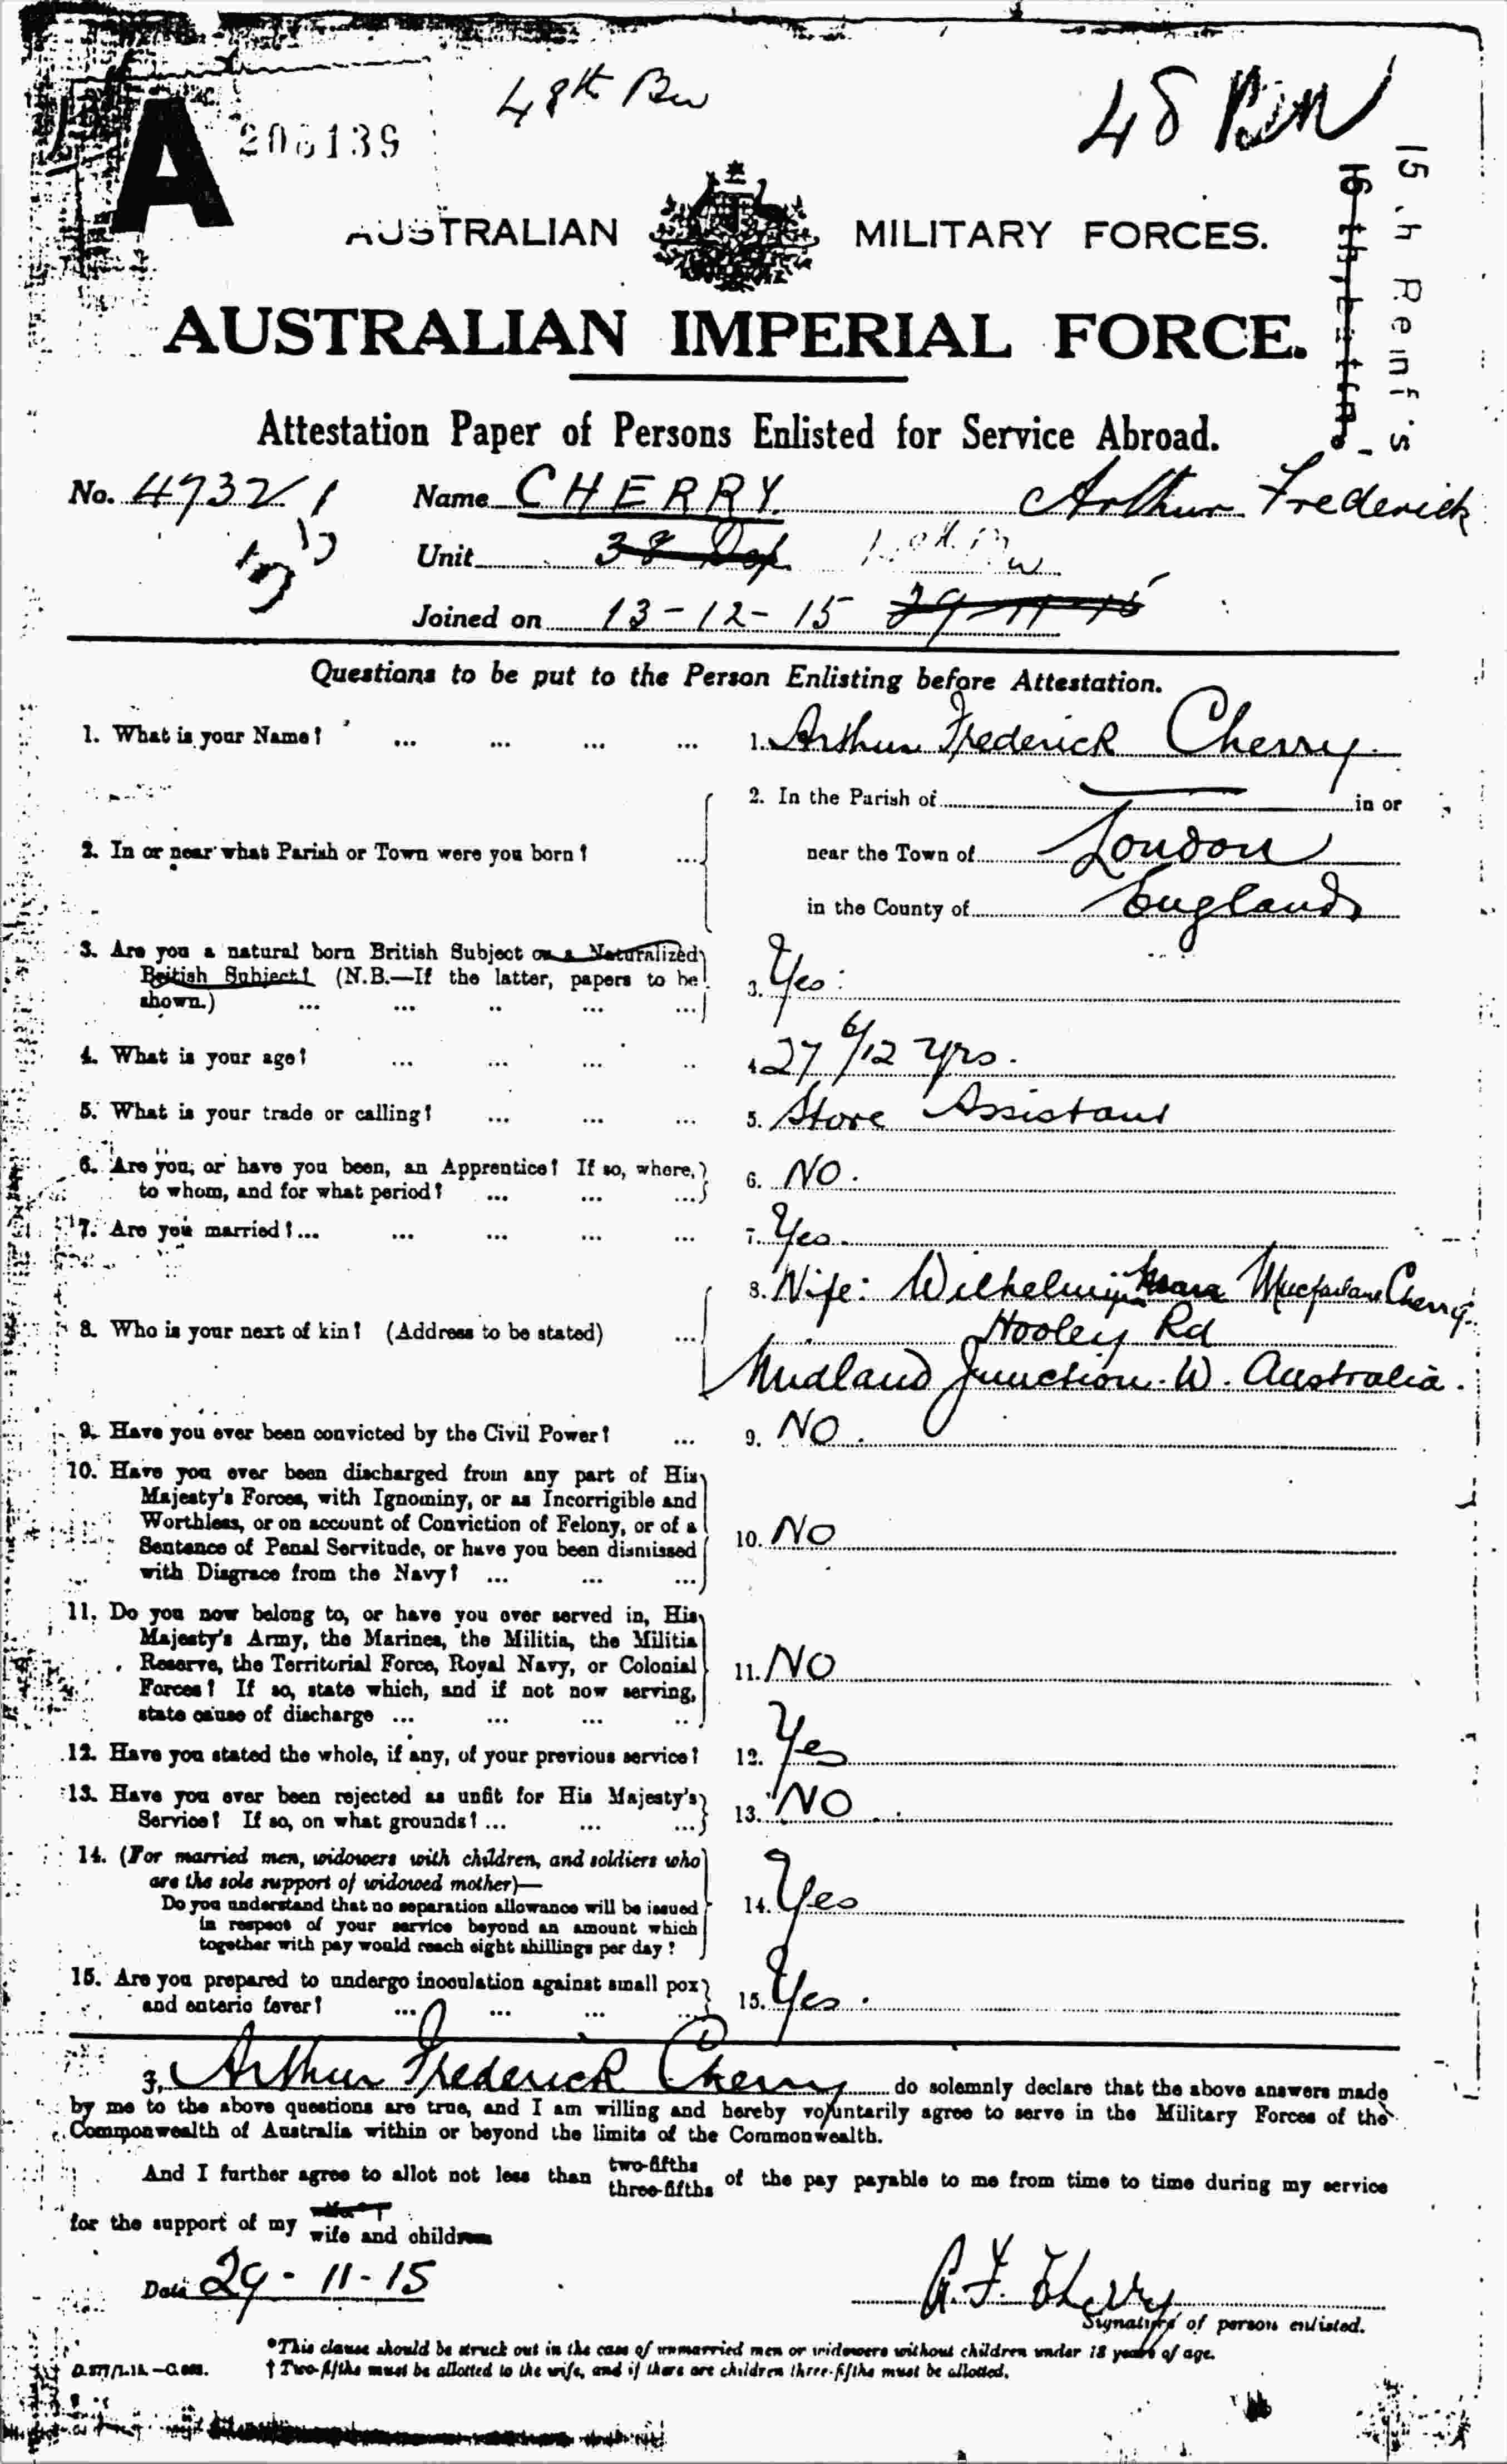 48th Bn
48 BN
A
206139
15th Reinf's
16th Battn.
AUSTRALIAN MILITARY FORCES.
AUSTRALIAN IMPERIAL FORCE.
Attestation Paper of Persons Enlisted for Service Abroad.
No. 4732 Name CHERRY. Arthur Frederick
Unit 38 Dep.
Joined on 13-12-15 29-11-15
Questions to be put to the Person Enlisting before Attestation.
1. What is your Name? ... ... ... ... 1. Arthur Frederick Cherry.
2. In the Parish of — in or
2. In or near what Parish or Town were you born? ... near the Town of London
in the County of England
3. Are you a natural born British Subject or a Naturalized
British Subject? (N.B.—If the latter, papers to be
shown.) ... ... .. ... ... 3. Yes:
4. What is your age? ... ... ... .. 4. 27 6/12 yrs.
5. What is your trade or calling? ... ... ... 5. Store Assistant
6. Are you, or have you been, an Apprentice? If so, where,
to whom, and for what period? ... ... ... 6. NO.
7. Are you married? ... ... ... ... ... 7. Yes.
8. Wife: Wilhelmina Macfarlane Cherry.
8. Who is your next of kin? (Address to be stated) ... Hooley Rd
Midland Junction. W. Australia.
9. Have you ever been convicted by the Civil Power? ... 9. NO.
10. Have you ever been discharged from any part of His
Majesty's Forces, with Ignominy, or as Incorrigible and
Worthless, or on account of Conviction of Felony, or of a
Sentence of Penal Servitude, or have you been dismissed
with Disgrace from the Navy? ... ... ... 10. NO
11. Do you now belong to, or have you ever served in, His
Majesty's Army, the Marines, the Militia, the Militia
Reserve, the Territorial Force, Royal Navy, or Colonial
Forces? If so, state which, and if not now serving,
state cause of discharge ... ... ... .. 11. NO
12. Have you stated the whole, if any, of your previous service? 12. Yes
13. Have you ever been rejected as unfit for His Majesty's
Service? If so, on what grounds? ... ... ... 13. NO.
14. (For married men, widowers with children, and soldiers who
are the sole support of widowed mother)—
Do you understand that no separation allowance will be issued
in respect of your service beyond an amount which
together with pay would reach eight shillings per day? 14. Yes
15. Are you prepared to undergo inoculation against small pox
and enteric fever? ... ... ... ... 15. Yes.
I, Arthur Frederick Cherry do solemnly declare that the above answers made
by me to the above questions are true, and I am willing and hereby voluntarily agree to serve in the Military Forces of the
Commonwealth of Australia within or beyond the limits of the Commonwealth.
And I further agree to allot not less than two-fifths three-fifths of the pay payable to me from time to time during my service
for the support of my wife wife and children
Date 29-11-15 A. F. Cherry
Signature of person enlisted.
*This clause should be struck out in the case of unmarried men or widowers without children under 18 years of age.
† Two-fifths must be allotted to the wife, and if there are children three-fifths must be allotted.